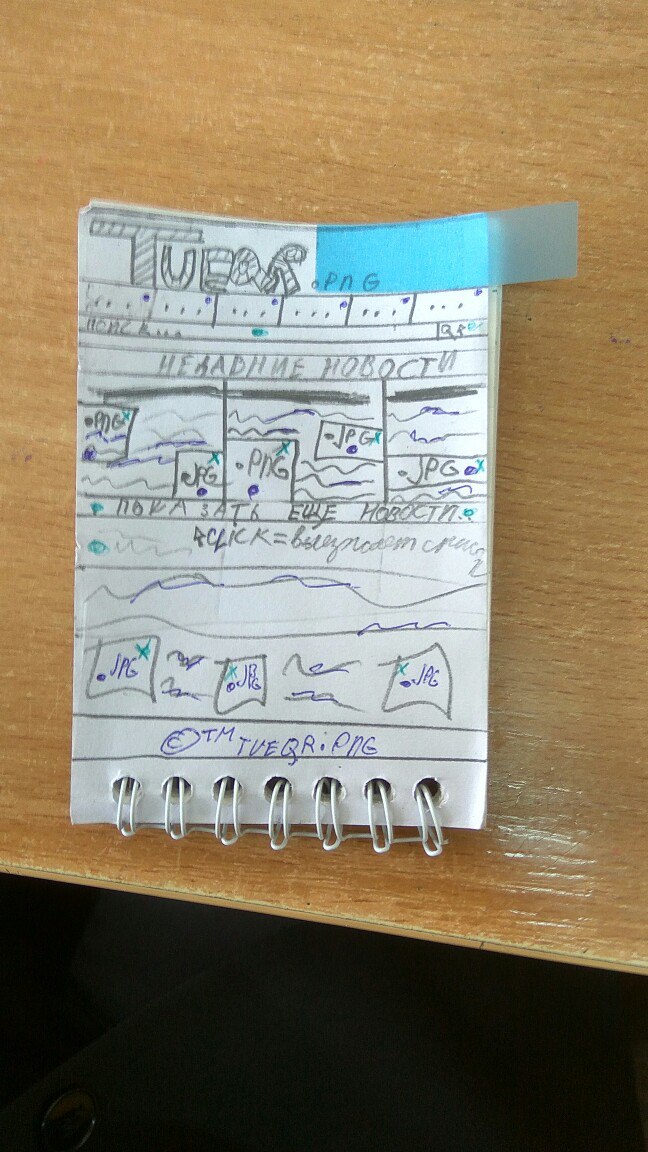 .PNG
ПОИСК...
НЕДАВНИЕ НОВОСТИ
.PNG .JPG .PNG .JPG .JPG
ПОКАЗАТЬ ЕЩЕ НОВОСТИ..
CLICK=
.JPG .JPG .JPG
©TM TVEQR.PNG